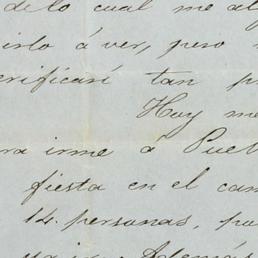 de lo cual me al
irlo á ver, pero
erificari tan p
Hoy me
ra irme á Pueb
fiesta en el cam
14 personas, pa
Además